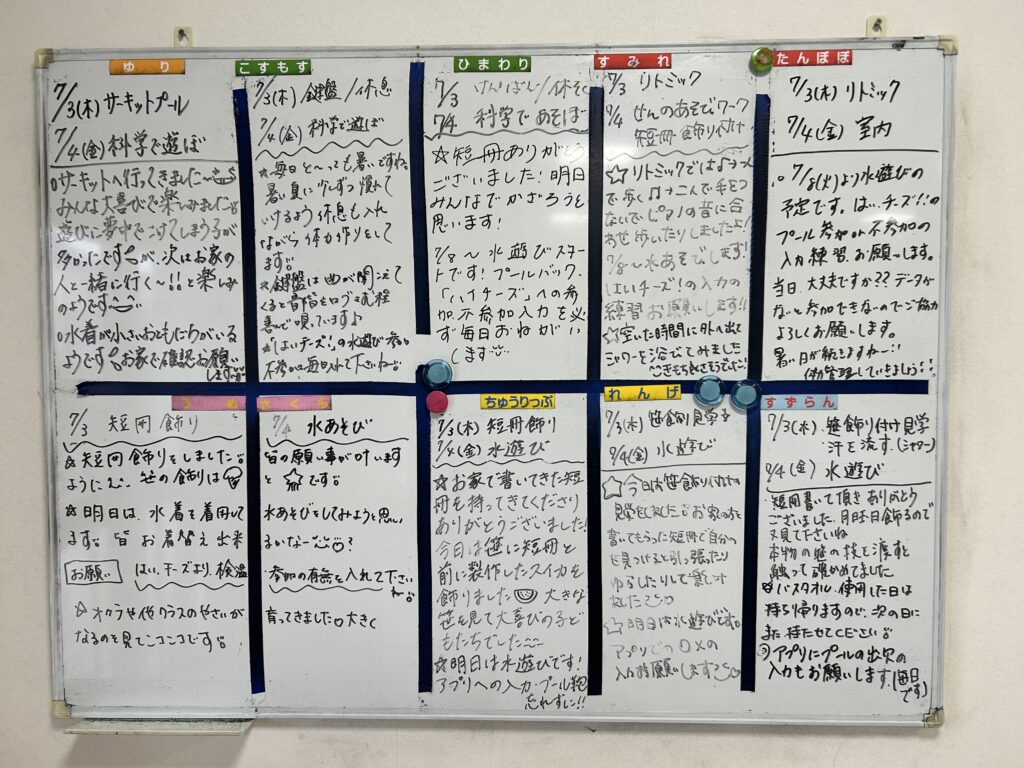 ゆり
7/3(木) サーキットプール
7/4(金) 科学で遊ぼ
○サーキットへ行ってきました〜
みんな大喜びで楽しみました
遊びに夢中でこけてしまう子が
多かったですが、次はお家の
人と一緒に行く〜!!と楽しみ
のようです
○水着が小さいおともだちがいる
ようです お家で確認お願い
します
こすもす
7/3(木) 鍵盤/休息
7/4(金) 科学で遊ぼ
☆毎日と〜っても暑いですね
暑い夏に少しずつ慣れて
いけるよう休息も入れ
ながら体力作りをして
ます
☆鍵盤は曲が聞こえて
くると音階を口ずさむ程
喜んで唄っています♪
☆はいチーズ!の水遊び参・
不参加毎日入れて下さいね
ひまわり
7/3 けんばん/休そく
7/4 科学であそぼ
☆短冊ありがとう
ございました!明日
みんなでかざろうと
思います!
7/8〜水遊びスター
トです!プールバック、
「ハイチーズ」への参
加、不参加入力を必
ず毎日おねがい
します
すみれ
7/3 リトミック
7/4 せんのあそびワーク
短冊飾り付け
☆リトミックでは♩→1人
で歩く♫→二人で手をつ
ないでピアノの音に合
わせ歩いたりしましたよ!
7/8〜水あそびします!
はいチーズ!の入力の
練習お願いします!!
☆空いた時間に外へ出て
シャワーを浴びてみました
きもちよさそうでした
たんぽぽ
7/3(木) リトミック
7/4(金) 室内
○7/8(火)より水遊びの
予定です。はい、チーズ!の
プール参加or不参加の
入力練習、お願いします。
当日、大丈夫ですか??データが
ないと参加できないのでご協力
よろしくお願いします。
暑い日が続きますね〜
体調管理していきましょう
うめ
7/3 短冊飾り
☆短冊飾りをしました
ように 笹の飾りは
☆明日は、水着を着用して
ます 皆 お着替え出来
お願い はい、チーズより、検温
☆オクラや他クラスのやさいが
なるのを見てニコニコです
さくら
7/4 水あそび
皆の願い事が叶います
と☆です
水あそびをしてみようと思い
るいな〜?
・参加の有無を入れて下さい
ね
育ってきました 大きく
ちゅうりっぷ
7/3(木) 短冊飾り
7/4(金) 水遊び
☆お家で書いてきた短
冊を持ってきてくださり
ありがとうございました!
今日は笹に短冊と
前に製作したスイカを
飾りました 大きな
笹を見て大喜びの子ど
もたちでした〜
☆明日は水遊びです!
アプリへの入力・プール鞄
忘れずに!!
れんげ
7/3(木) 笹飾り見学
7/4(金) 水遊び
☆今日は笹飾り
見学をしました お家の方に
書いてもらった短冊で自分の
を見つけると引っ張たり
ゆらしたりして楽しみ
ました
☆明日は水遊びです
アプリでの〇×の
入力お願いします
すずらん
7/3(木)・笹飾り付け見学
・汗を流す(シャワー)
7/4(金) 水遊び
・短冊書いて頂きありがとう
ございました。明日飾るので
又見て下さいね
本物の笹の枝を渡すと
触って確かめてました
☆バスタオル、使用した日は
持ち帰りますので、次の日に
また持たせてください
アプリにプールの出欠の
入力もお願いします。(毎日
です)